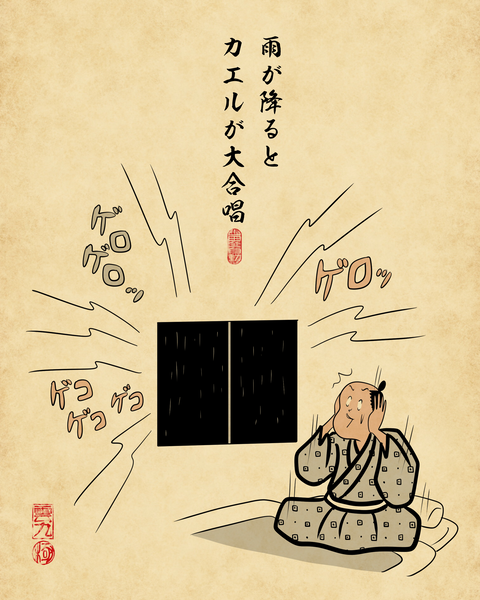 雨が降ると
カエルが大合唱
ゲロッ
ゲロ
ゲロッ
ゲコ
ゲコ
ゲコ